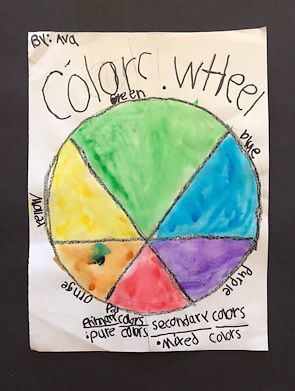 BY: Ava
Colorc wHeel
green
blue
yellow
ornge
purple
Primary colors secondary colors
• pure colors • Mixed colors